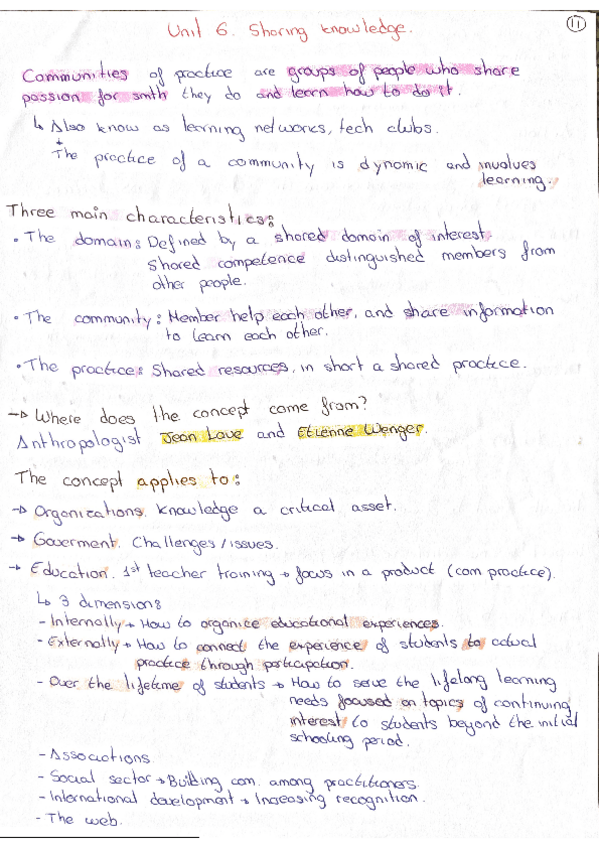 Unit 6. Sharing knowledge.
11
Communities of practice are groups of people who share
passion for smth they do and learn how to do it.
↳ Also know as learning networks, tech clubs.
The practice of a community is dynamic and involves
learning.
Three main characteristics:
• The domain: Defined by a shared domain of interest.
Shared competence distinguished members from
other people.
• The community: Member help each other, and share information
to learn each other.
• The practice: Shared resources, in short a shared practice.
→ Where does the concept come from?
Anthropologist Jean Lave and Etienne Wenger.
The concept applies to:
→ Organizations. Knowledge a critical asset.
→ Goverment. Challenges / issues.
→ Education. 1st teacher training → focus in a product (com practice).
↳ 3 dimensions
- Internally → How to organice educational experiences.
- Externally → How to connect the experience of students to actual
practice through participation.
- Over the lifetime of students → How to serve the lifelong learning
needs focused on topics of continuing
interest to students beyond the initial
schooling period.
- Associations.
- Social sector → Building com. among practitioners.
- International development → Increasing recognition.
- The web.